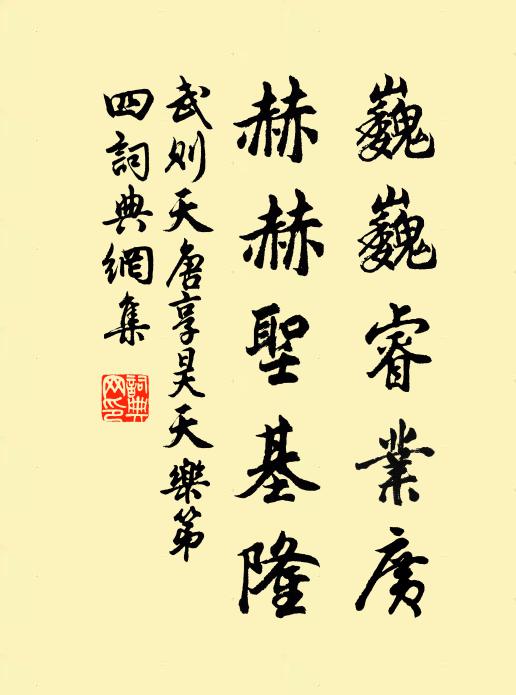 巍巍睿業廣
赫赫聖基隆
武则天唐享昊天樂第
四詞典網集
詞典网印